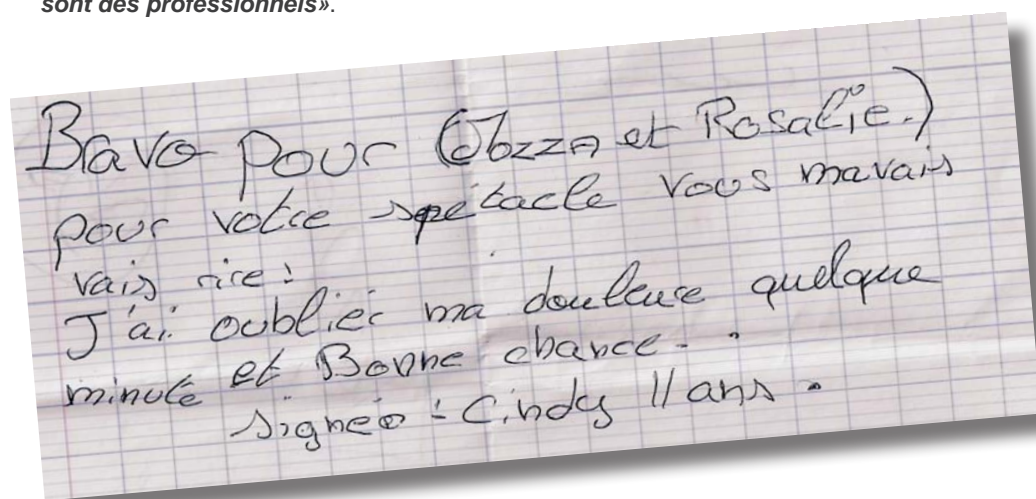 sont des professionnels».
Bravo pour (Obzza et Rosalie.)
pour votre spétacle vous mavais
vais rire!
J'ai oublier ma douleure quelque
minute et Bonne chance.
signée : Cindy 11 ans.